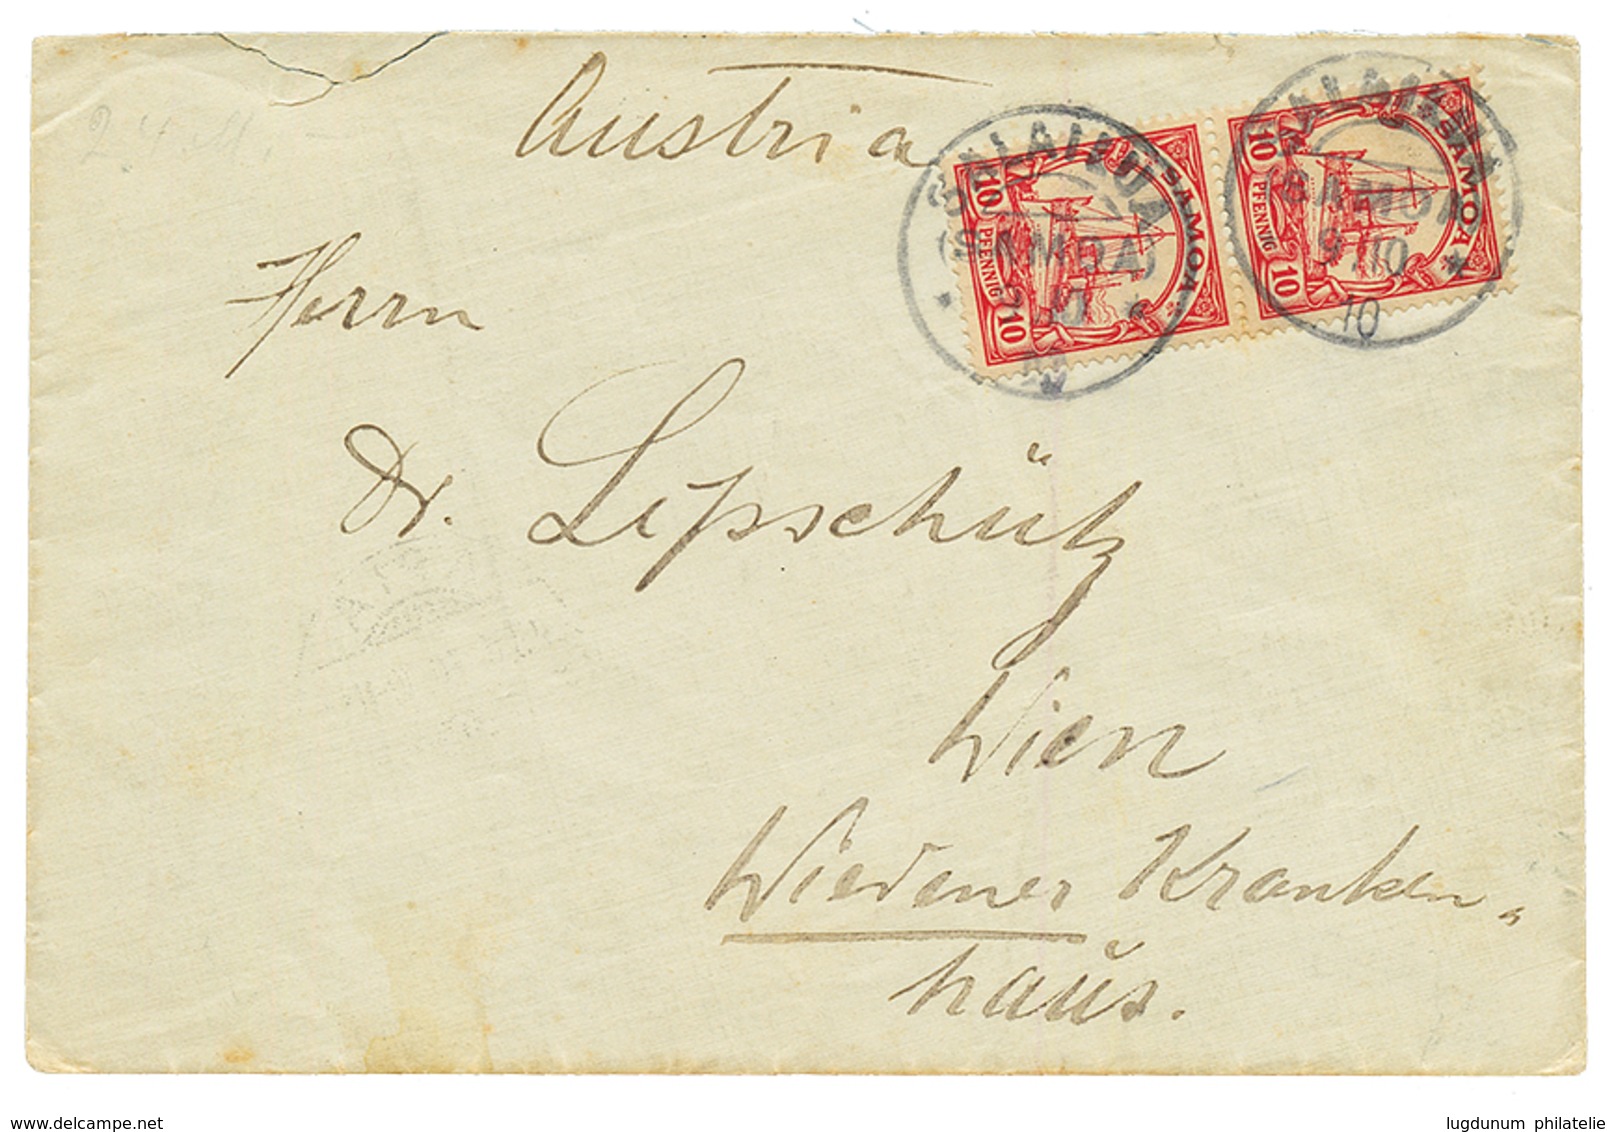 Austria
SAMOA
10 PFENNIG 10
SAMOA
10 PFENNIG 10
(SAMOA)
(SAMOA)
9.10
10
Herrn
Dr. Lipschütz
Wien
Wiedener Kranken„
haus.
delcampe.net
lugdunum philatelie